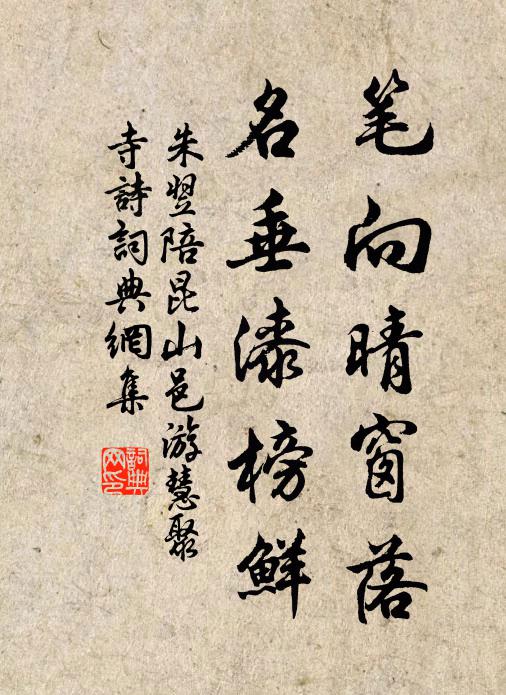 笔向晴窗落
名垂漆榜鮮
朱翌陪昆山邑游慧聚
寺詩詞典網集
詞典
网印